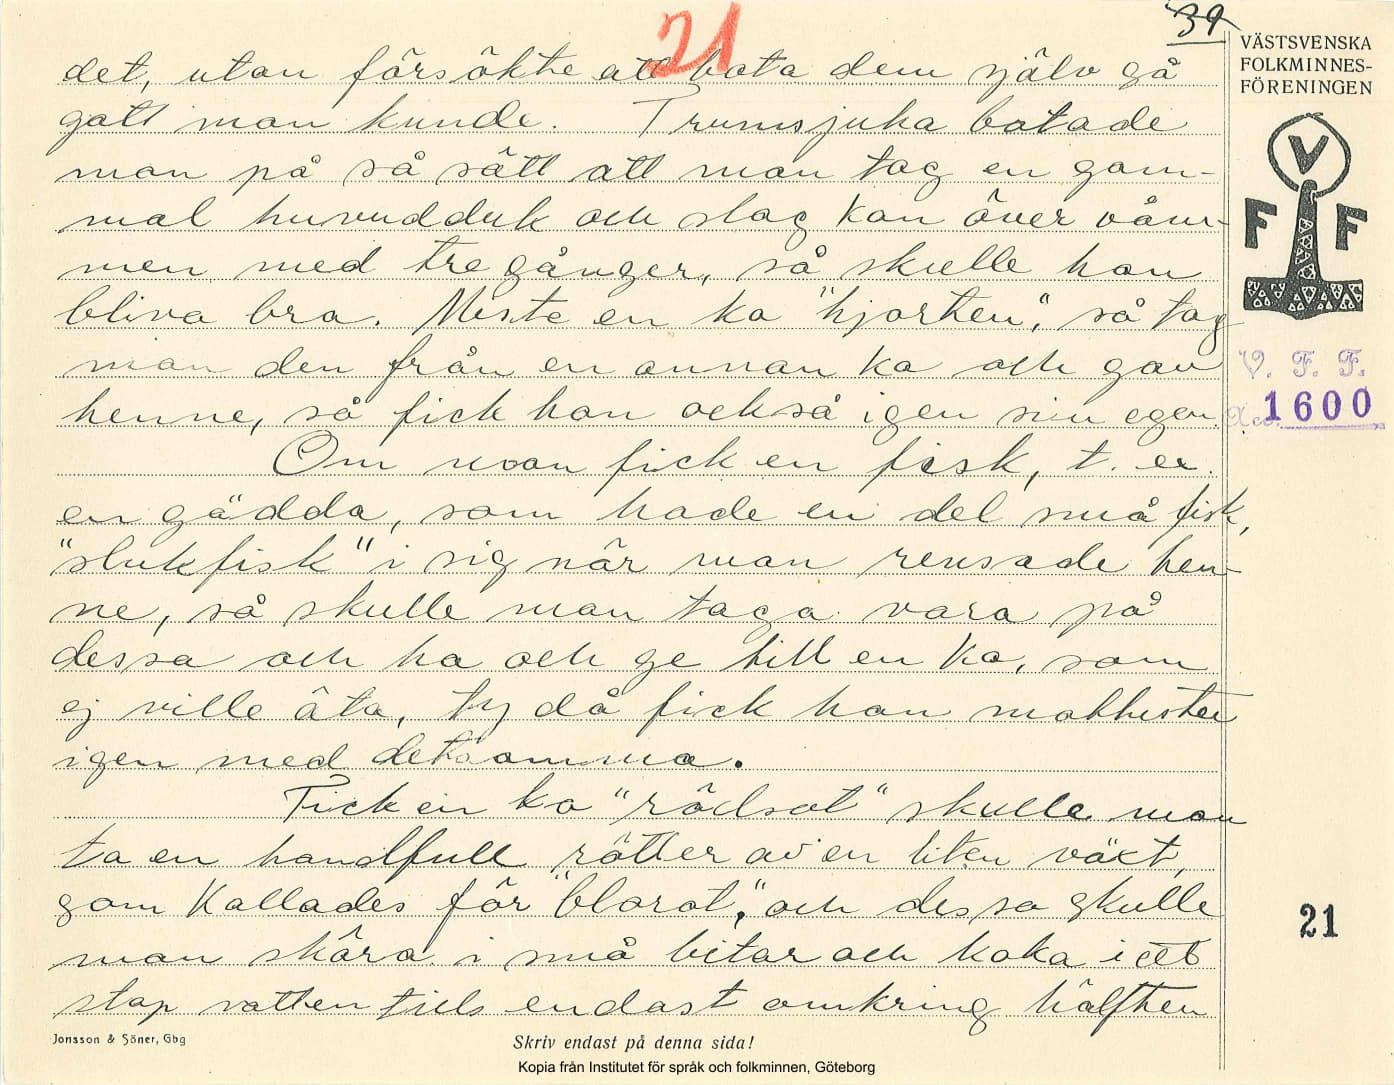 21
39
VÄSTSVENSKA
FOLKMINNES-
FÖRENINGEN
V
F F
V. F. F.
Acc. 1600
det, utan försökte att bota dem själv så
gott man kunde. Trumsjuka botade
man på så sätt att man tog en gam-
mal huvudduk och slog kon över våm-
men med tre gånger, så skulle hon
bliva bra. Miste en ko "hjorten", så tog
man den från en annan ko och gav
henne, så fick hon också igen sin egen.
Om man fick en fisk, t. ex.
en gädda, som hade en del små fisk,
"slukfisk" i sig när man rensade hen-
ne, så skulle man taga vara på
dessa och ha och ge till en ko, som
ej ville äta, ty då fick hon matlusten
igen med detsamma.
Fick en ko "rödsot" skulle man
ta en handfull rötter av en liten växt,
som kallades för "blorot", och dessa skulle
man skära i små bitar och koka i ett
stop vatten tills endast omkring hälften
21
Jonsson & Söner, Gbg
Skriv endast på denna sida!
Kopia från Institutet för språk och folkminnen, Göteborg